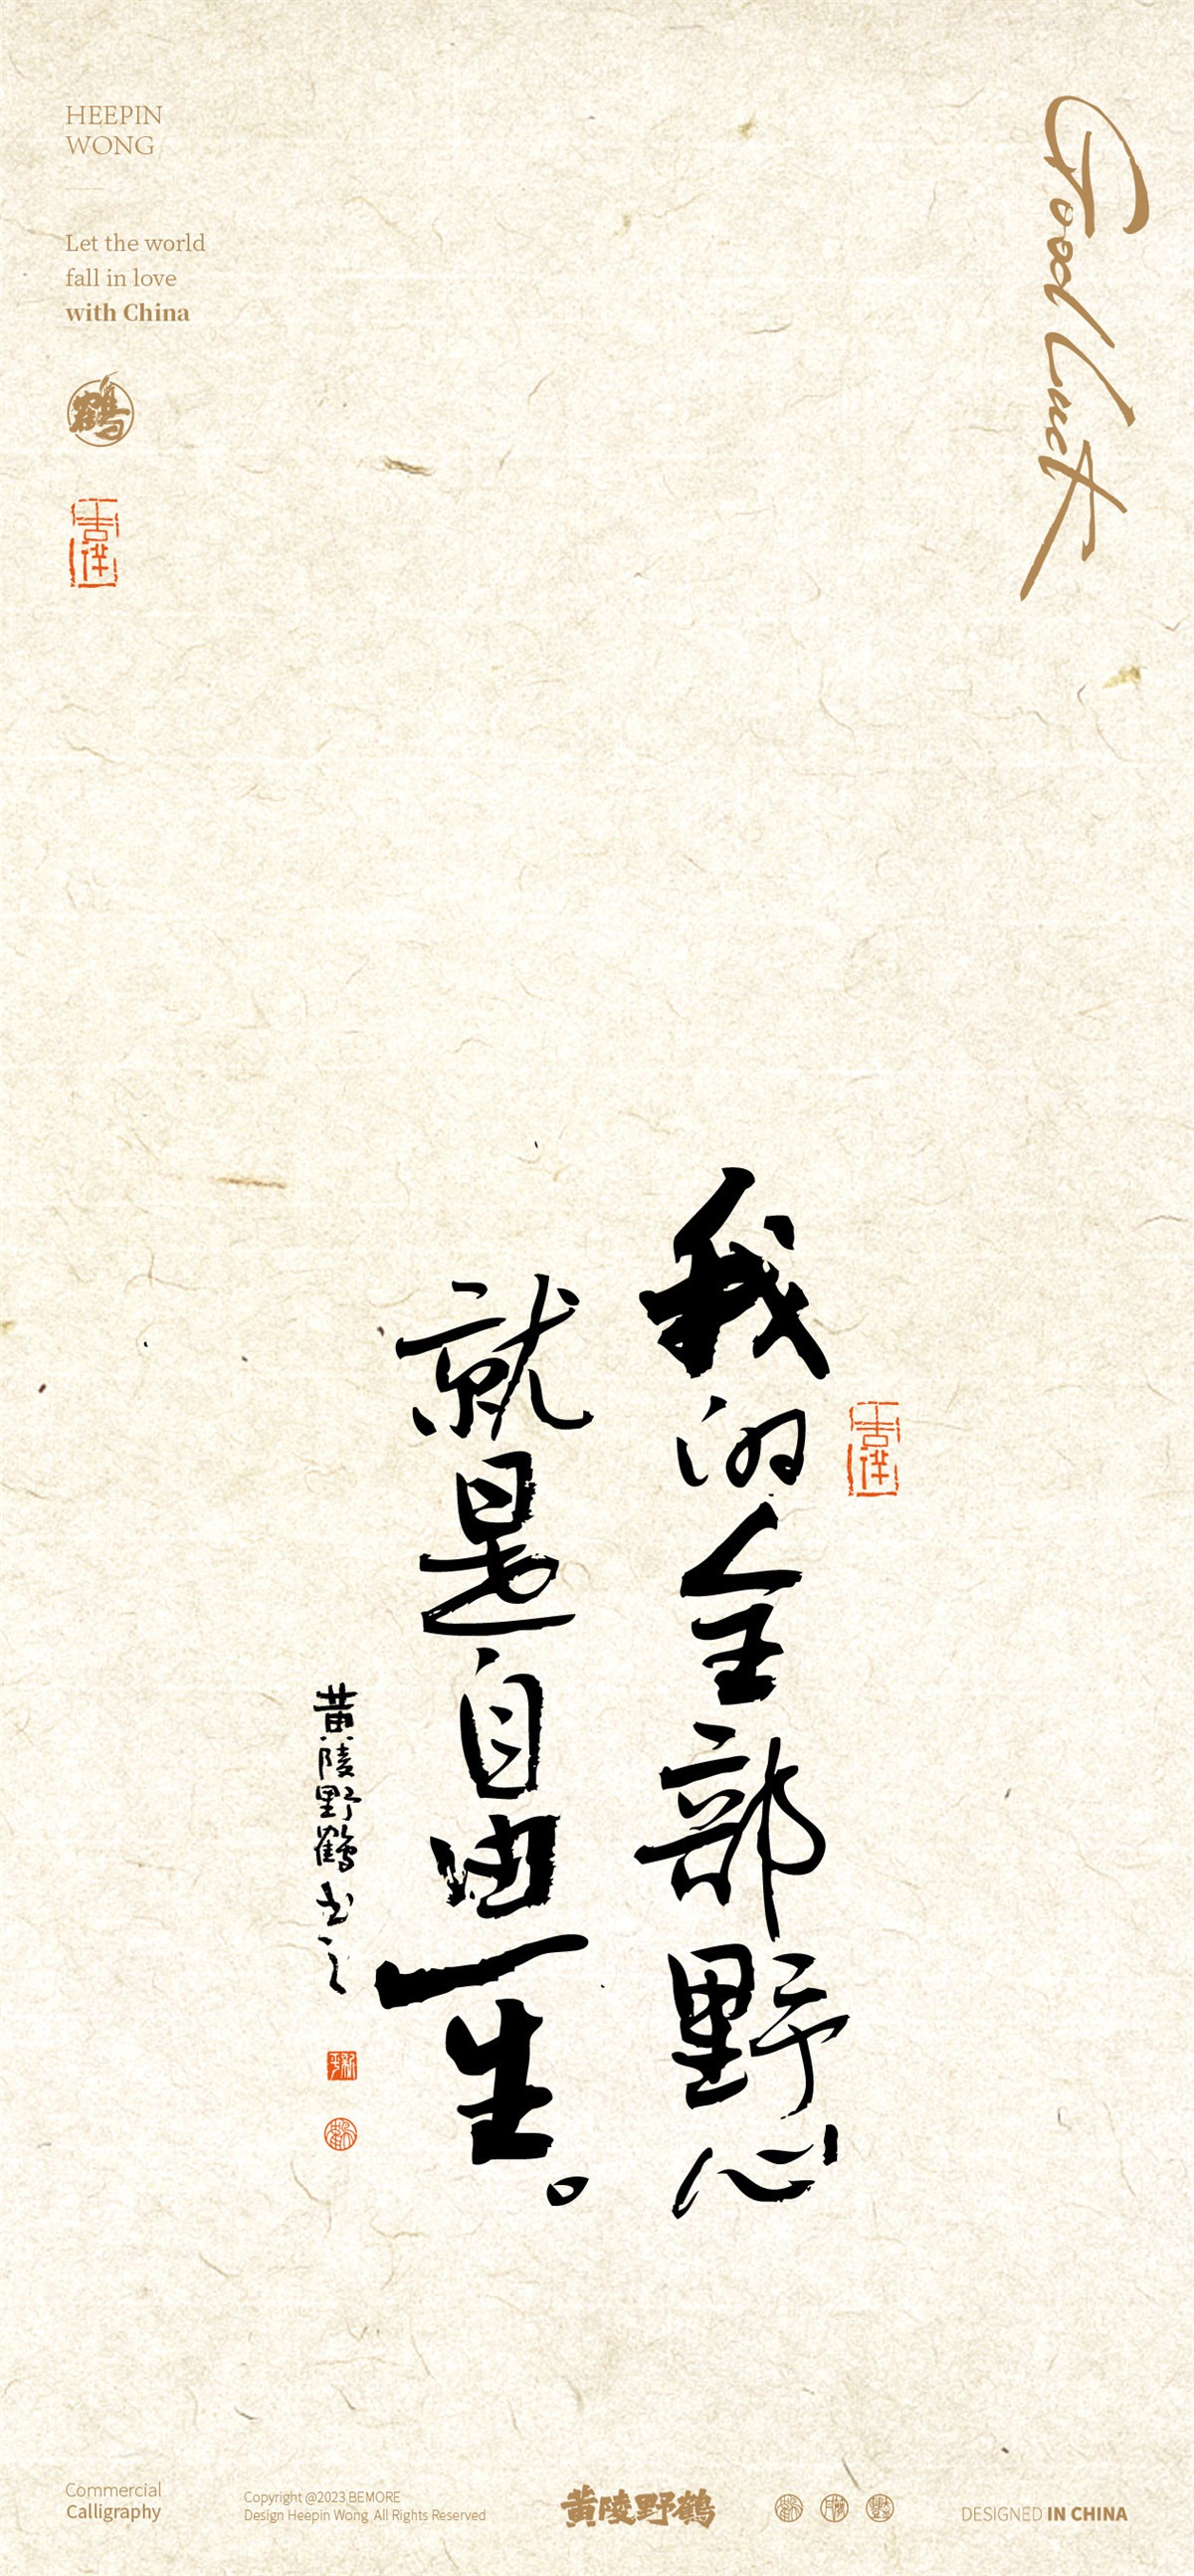 HEEPIN
WONG
Let the world
fall in love
with China
鶴
Good luck
我的全部野心
就是自由一生。
黄陵野鶴书之
Commercial
Calligraphy
Copyright @2023 BEMORE
Design Heepin Wong, All Rights Reserved
黄陵野鶴
DESIGNED IN CHINA